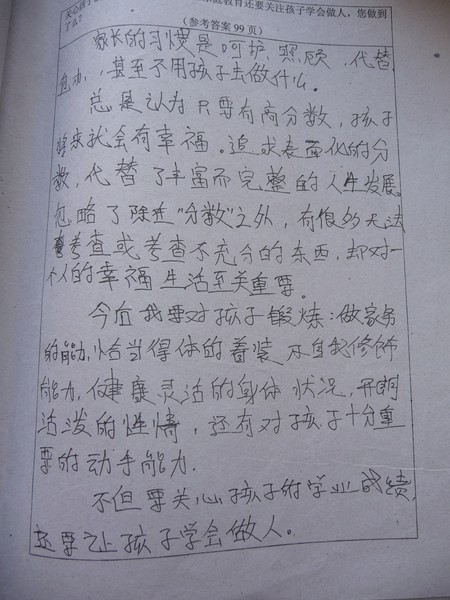 关心孩子
庭教育还要关注孩子学会做人，您做到
了么？
（参考答案 99 页）
家长的习惯是呵护、照顾，代替
包办，甚至不用孩子去做什么。
总是认为只要有高分数，孩子
将来就会有幸福。追求表面化的分
数，代替了丰富而完整的人生发展。
忽略了除这“分数”之外，有很多无法
考查或考查不充分的东西，却对一
个人的幸福生活至关重要。
今后我要对孩子锻炼：做家务
的能力，恰当得体的着装和自我修饰
能力，健康灵活的身体状况，开朗
活泼的性情，还有对孩子十分重
要的动手能力．
不但要关心孩子的学业成绩，
还要让孩子学会做人。